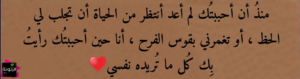 منذُ أن أحببتُك لم أعد أنتظر من الحياة أن تجلب لي
الحظ ، أو تغمرني بقوس الفرح ، أنا حين أحببتك رأيتُ
بِك كُل ما تُريده نفسي❤️